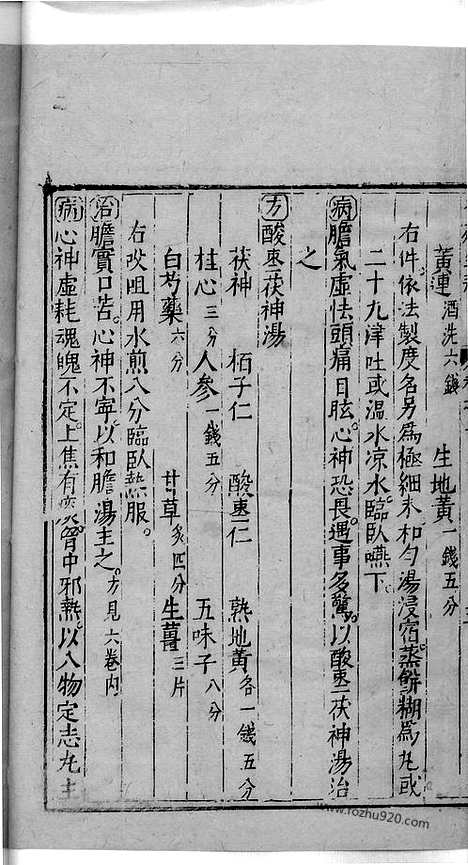 黃連酒洗六錢 生地黃一錢五分
右件依法製度各另為極細末和勻湯浸宿蒸餅糊為丸或
二十九津吐或温水凉水臨臥嚥下
病膽氣虛怯頭痛目眩心神恐畏遇事多驚以酸棗茯神湯治
之
方酸棗茯神湯
茯神 栢子仁 酸棗仁 熟地黃各一錢五分
桂心三分 人參一錢五分 五味子八分
白芍藥六分 甘草炙四分 生薑三片
右㕮咀用水煎八分臨臥熱服
治膽實口苦心神不寧以和膽湯主之方見六卷內
病心神虛耗魂魄不定上焦有痰胷中邪熱以八物定志丸主
www.fozhu920.com